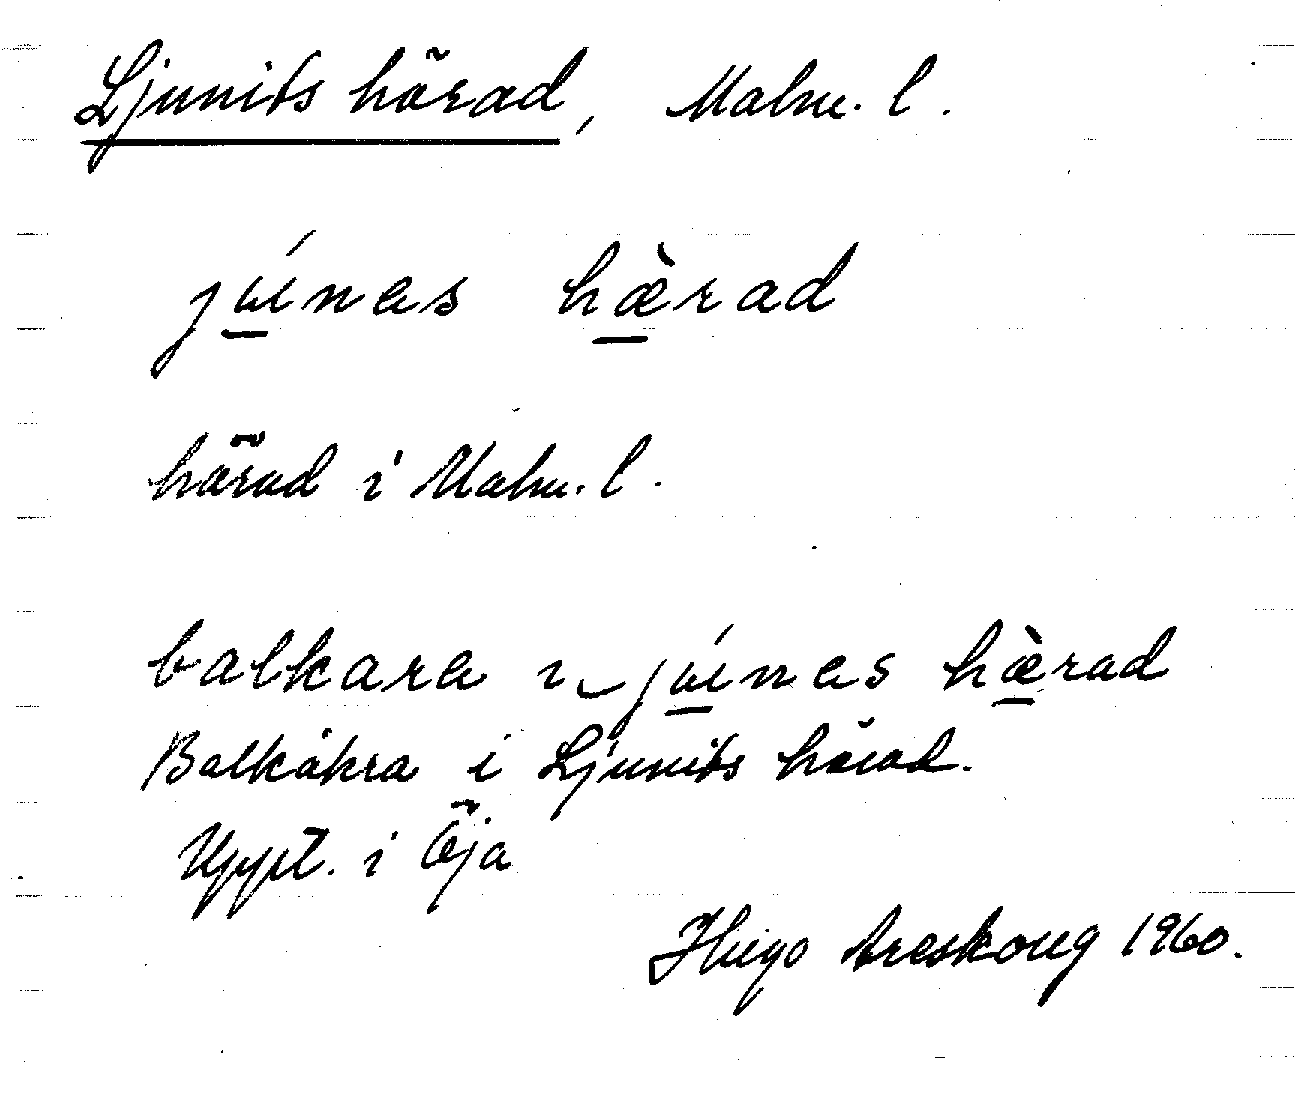 Ljunits härad, Malm. l.
júnas hæ̀rad
härad i Malm. l.
balkara i júnas hæ̀rad
Balkåkra i Ljunits härad.
Uppt. i Öja
Hugo Areskoug 1960.